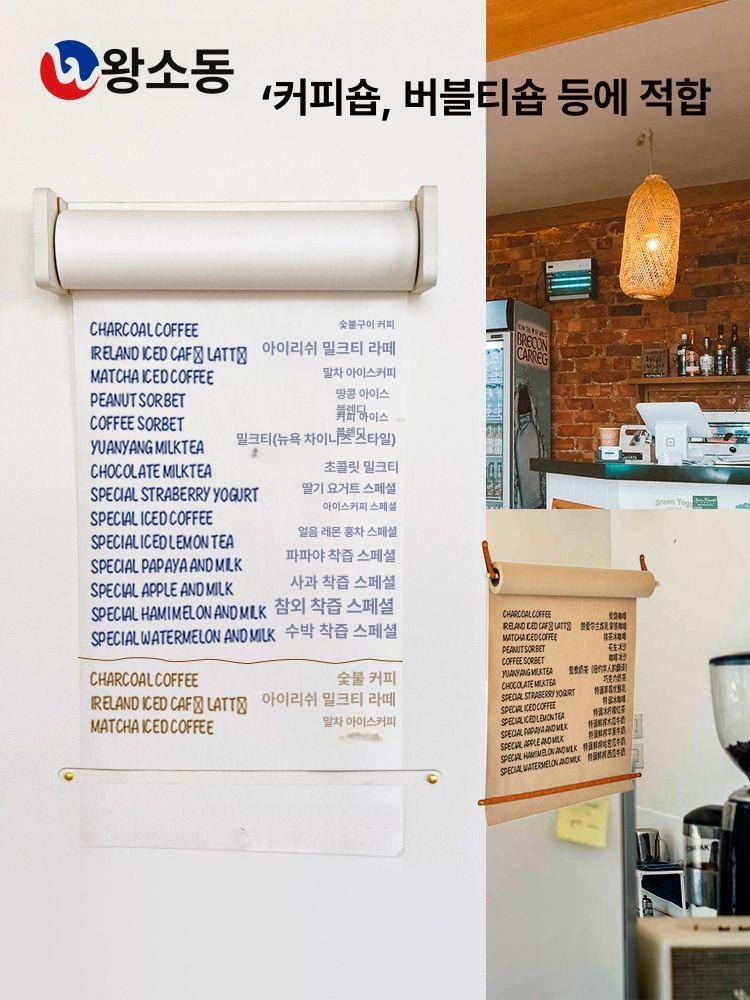 왕소동
‘커피숍, 버블티숍 등에 적합
CHARCOAL COFFEE 숯불구이 커피
IRELAND ICED CAF□ LATT□ 아이리쉬 밀크티 라떼
MATCHA ICED COFFEE 말차 아이스커피
PEANUT SORBET 땅콩 아이스 블렌디
COFFEE SORBET 커피 아이스 블렌디
YUANYANG MILKTEA 밀크티(뉴욕 차이니즈 스타일)
CHOCOLATE MILKTEA 초콜릿 밀크티
SPECIAL STRABERRY YOGURT 딸기 요거트 스페셜
SPECIAL ICED COFFEE 아이스커피 스페셜
SPECIAL ICED LEMON TEA 얼음 레몬 홍차 스페셜
SPECIAL PAPAYA AND MILK 파파야 착즙 스페셜
SPECIAL APPLE AND MILK 사과 착즙 스페셜
SPECIAL HAMIMELON AND MILK 참외 착즙 스페셜
SPECIAL WATERMELON AND MILK 수박 착즙 스페셜
CHARCOAL COFFEE 숯불 커피
IRELAND ICED CAF□ LATT□ 아이리쉬 밀크티 라떼
MATCHA ICED COFFEE 말차 아이스커피
BRECON
CARREG
Green Yog
CHARCOAL COFFEE 炭烧咖啡
IRELAND ICED CAF□ LATT□
MATCHA ICED COFFEE 抹茶冰咖啡
PEANUT SORBET 花生冰沙
COFFEE SORBET 咖啡冰沙
YUANYANG MILKTEA
CHOCOLATE MILKTEA 巧克力奶茶
SPECIAL STRABERRY YOGURT
SPECIAL ICED COFFEE 特调冰咖啡
SPECIAL ICED LEMON TEA 特调冰柠檬红茶
SPECIAL PAPAYA AND MILK 特调鲜榨木瓜牛奶
SPECIAL APPLE AND MILK 特调鲜榨苹果牛奶
SPECIAL HAMIMELON AND MILK 特调鲜榨哈密瓜牛奶
SPECIAL WATERMELON AND MILK 特调鲜榨西瓜牛奶